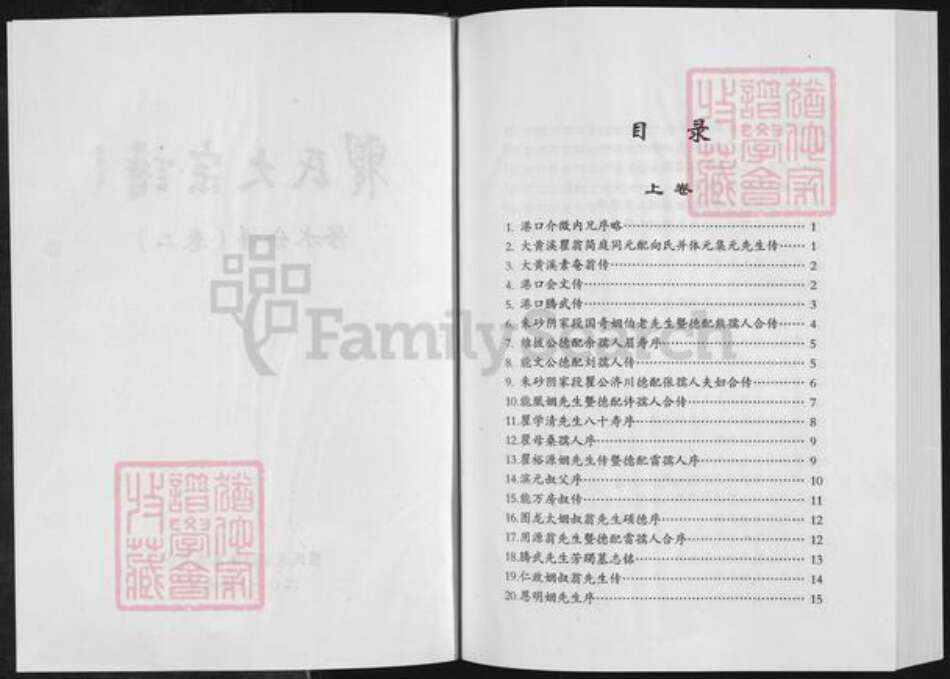 目录
上卷
1. 港口介微内兄序略 1
2. 大黄溪瞿翁简庭同元配向氏并体元集元先生传 1
3. 大黄溪素菴翁传 2
4. 港口会文传 2
5. 港口腾武传 3
6. 朱砂阴家段国奇姻伯老先生暨德配熊孺人合传 4
7. 维拔公德配余孺人眉寿序 5
8. 能文公德配刘孺人传 5
9. 朱砂阴家段瞿公济川德配张孺人夫妇合传 6
10. 能凰姻先生暨德配许孺人合传 7
11. 瞿学清先生八十寿序 8
12. 瞿母桑孺人序 9
13. 瞿裕源姻先生传暨德配雷孺人序 9
14. 滨元叔父序 10
15. 能万房叔传 11
16. 图龙太姻叔翁先生硕德序 12
17. 用源翁先生暨德配雷孺人合序 12
18. 腾武先生芳躅墓志铭 13
19. 仁政姻叔翁先生传 14
20. 恩明姻先生序 15
FamilySearch
猶他家
譜學會
收藏
猶他家
譜學會
收藏